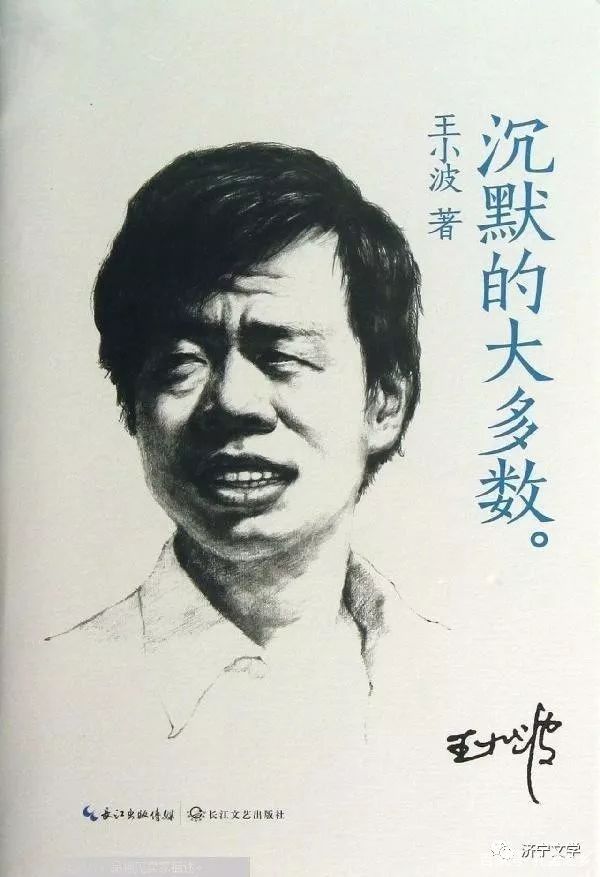 沉默的大多数。
王小波 著
王小波
长江出版传媒
长江文艺出版社
济宁文学